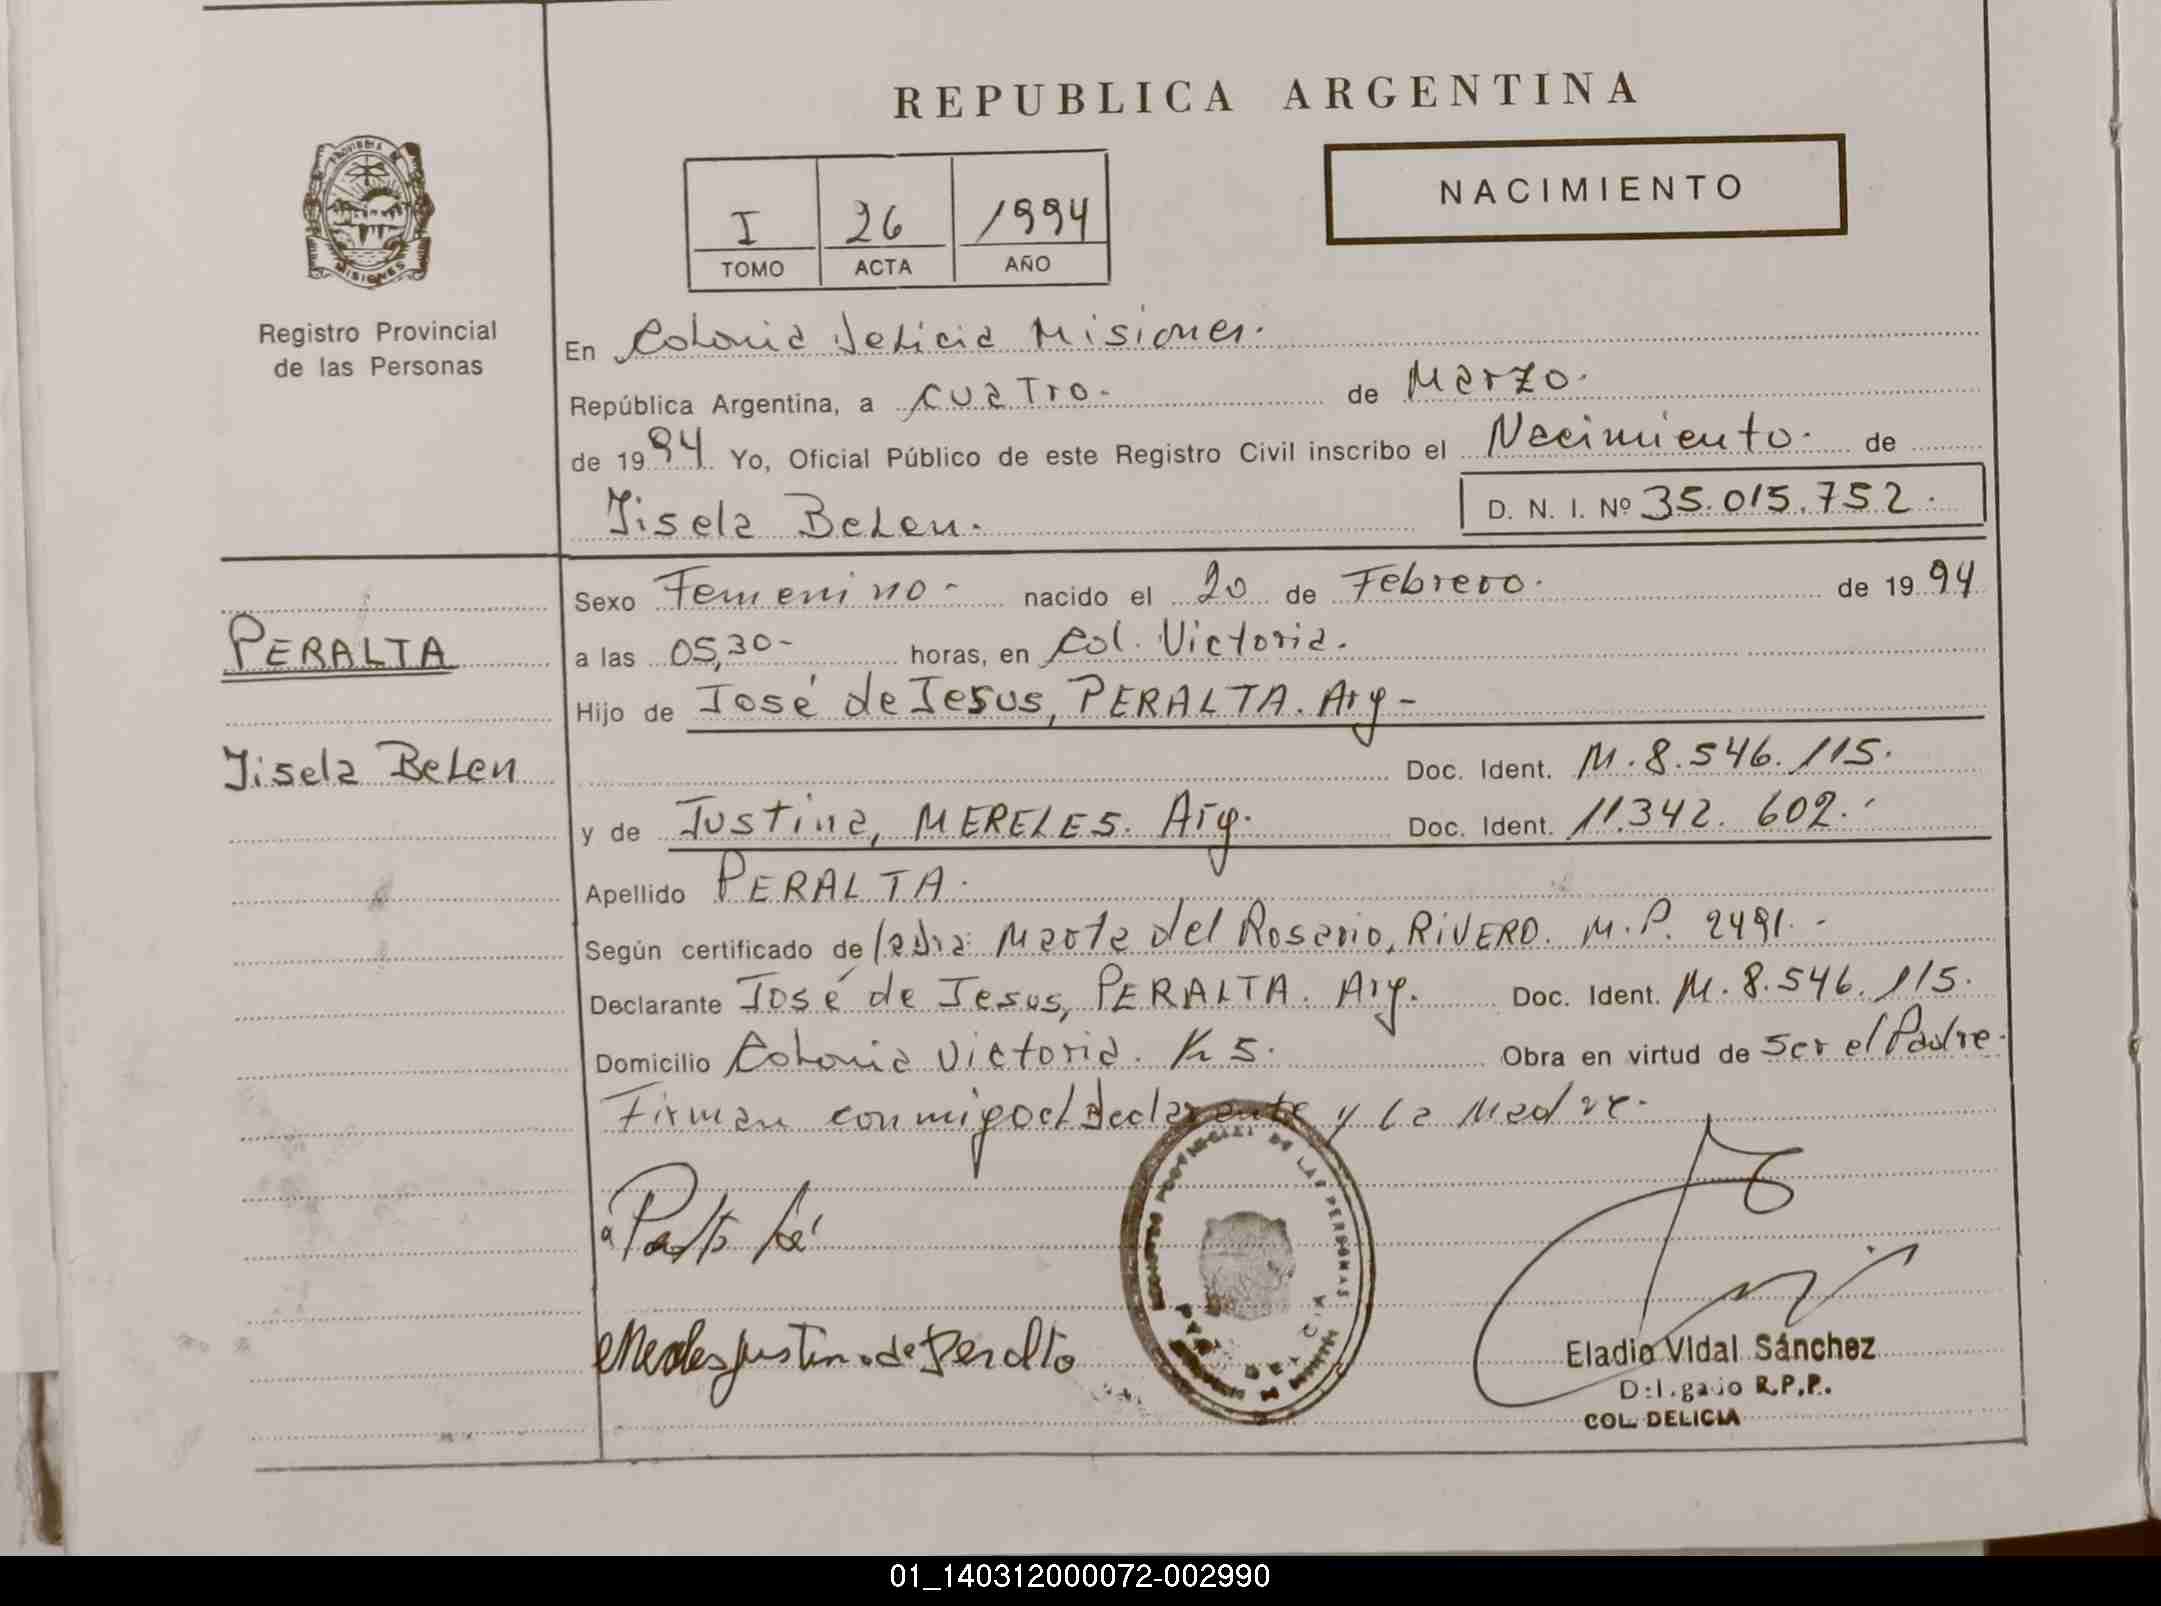 REPUBLICA ARGENTINA
PROVINCIA DE
MISIONES
Registro Provincial
de las Personas
I 26 1994
TOMO ACTA AÑO
NACIMIENTO
En Colonia Delicia Misiones.
República Argentina, a cuatro. de Marzo.
de 1994 Yo, Oficial Público de este Registro Civil inscribo el Nacimiento. de
Jisela Belen. D. N. I. Nº 35.015.752.
Sexo Femenino - nacido el 20 de Febrero. de 1994
PERALTA
a las 05,30- horas, en Col. Victoria.
Hijo de José de Jesus, PERALTA. Arg-
Jisela Belen
Doc. Ident. M. 8.546.115.
y de Justina, MERELES. Arg. Doc. Ident. 11.342.602.
Apellido PERALTA.
Según certificado de la Dra: Marta del Rosario, RIVERO. M.P. 2491.-
Declarante José de Jesus, PERALTA. Arg. Doc. Ident. M. 8.546.115.
Domicilio Colonia Victoria. K 5. Obra en virtud de Ser el Padre.
Firman conmigo el Declarante y La Madre.
PROVINCIAL DE LAS PERSONAS
Mereles Justina de Peralta
Eladio Vidal Sánchez
Delegado R.P.P.
COL. DELICIA
01_140312000072-002990